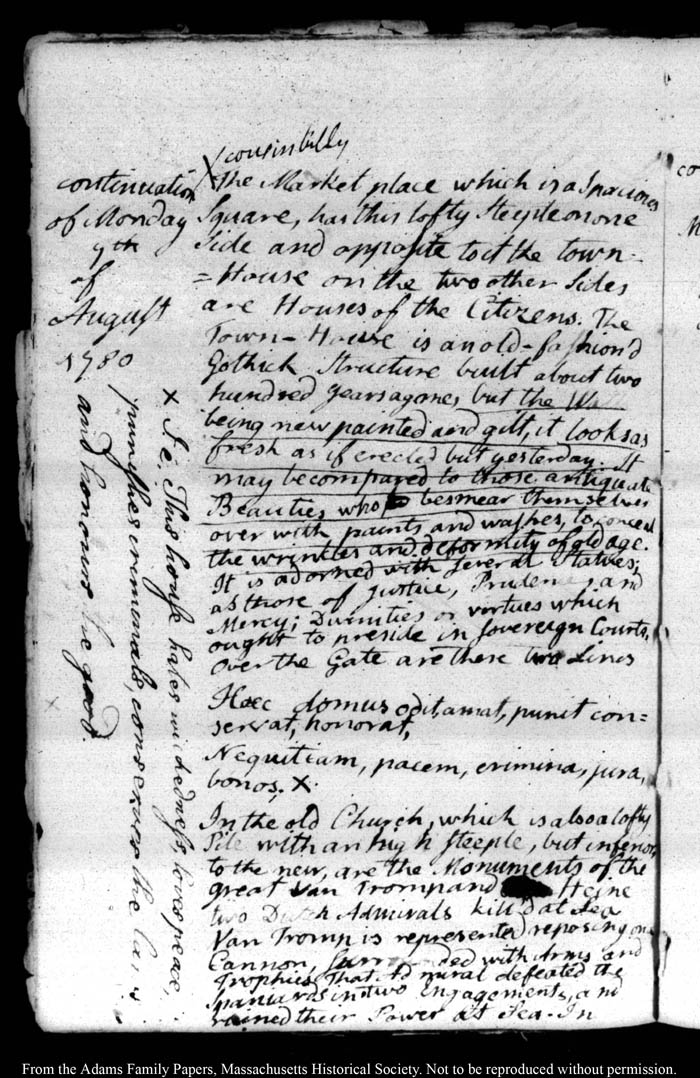 cousin billy
continuation
of Monday
9th
of
August
1780
X The Market place which is a Spacious
Square, has this lofty Steeple on one
Side and opposite to it the town-
=House on the two other Sides
are Houses of the Citizens. The
Town-House is an old-fashion'd
Gothick Structure built about two
hundred years agone, but the Wall
being new painted and gilt, it looks as
fresh as if erected but yesterday. It
may be compared to those antiquate
Beauties who besmear themselves
over with paints and washes, to conceal
the wrinkles and deformity of old age.
It is adorned with several Statues;
as those of Justice, Prudence, and
Mercy; Divinities or virtues which
ought to preside in Sovereign Courts.
Over the Gate are these two Lines
Hæc domus odit, amat, punit con=
servat, honorat,
Nequitiam, pacem, crimina, jura,
bonos. X
In the old Church, which is also a lofty
Pile with an high Steeple, but inferior
to the new, are the Monuments of the
great Van Tromp and Heine
two Dutch Admirals kill'd at Sea
Van Tromp is represented reposing on a
Cannon, Surrounded with Arms and
Trophies. That Admiral defeated the
Spaniards in two Engagements, and
ruined their Power at Sea. In
X I.e. This house hates wickedness, loves peace,
punishes criminals, conserves the laws
and honours the good.
co
From the Adams Family Papers, Massachusetts Historical Society. Not to be reproduced without permission.